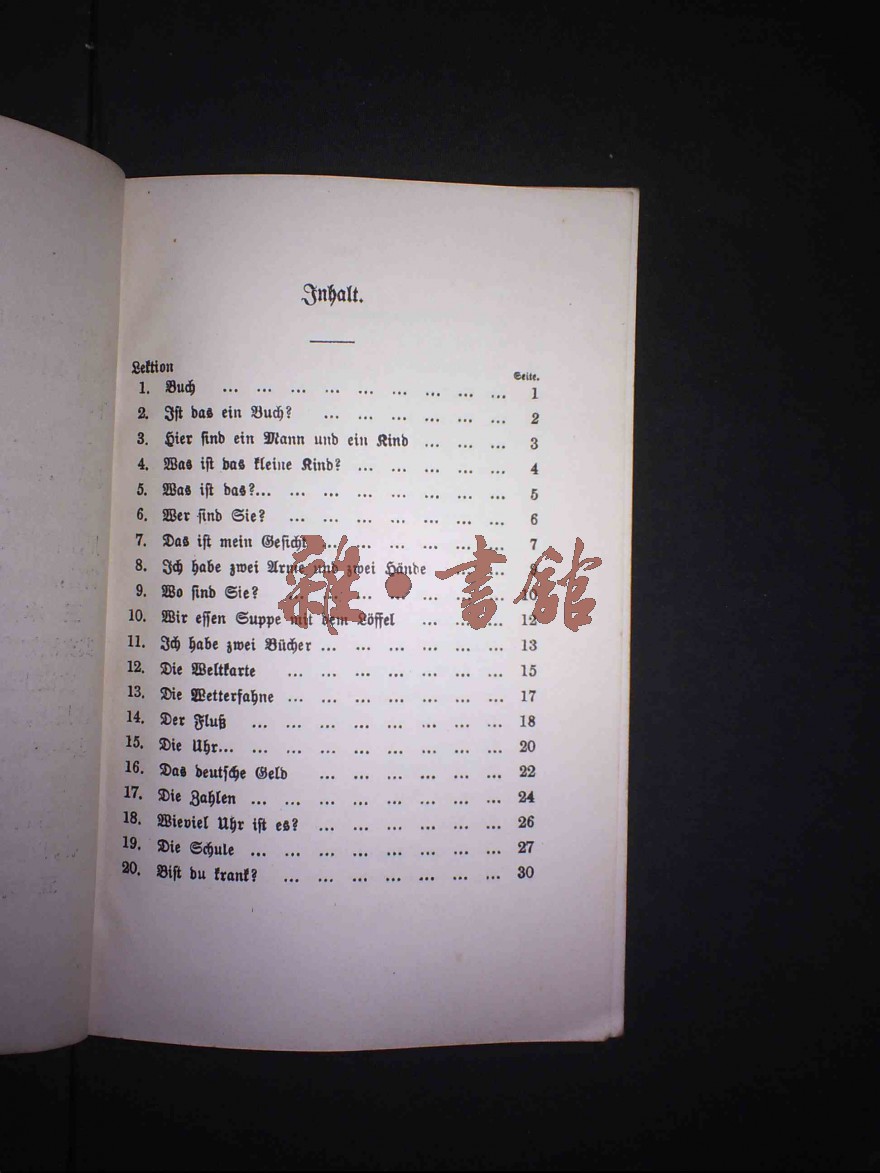 Inhalt.
Lektion Seite.
1. Buch ... ... ... ... ... ... ... ... ... 1
2. Ist das ein Buch? ... ... ... ... ... ... 2
3. Hier sind ein Mann und ein Kind ... ... ... 3
4. Was ist das kleine Kind? ... ... ... ... ... 4
5. Was ist das?... ... ... ... ... ... ... ... 5
6. Wer sind Sie? ... ... ... ... ... ... ... 6
7. Das ist mein Gesicht ... ... ... ... ... ... 7
8. Ich habe zwei Arme und zwei Hände ... ... 9
9. Wo sind Sie? ... ... ... ... ... ... ... 10
10. Wir essen Suppe mit dem Löffel ... ... ... 12
11. Ich habe zwei Bücher ... ... ... ... ... ... 13
12. Die Weltkarte ... ... ... ... ... ... ... 15
13. Die Wetterfahne ... ... ... ... ... ... ... 17
14. Der Fluß ... ... ... ... ... ... ... ... 18
15. Die Uhr... ... ... ... ... ... ... ... ... 20
16. Das deutsche Geld ... ... ... ... ... ... 22
17. Die Zahlen ... ... ... ... ... ... ... ... 24
18. Wieviel Uhr ist es? ... ... ... ... ... ... 26
19. Die Schule ... ... ... ... ... ... ... ... 27
20. Bist du krank? ... ... ... ... ... ... ... 30
雜·書館